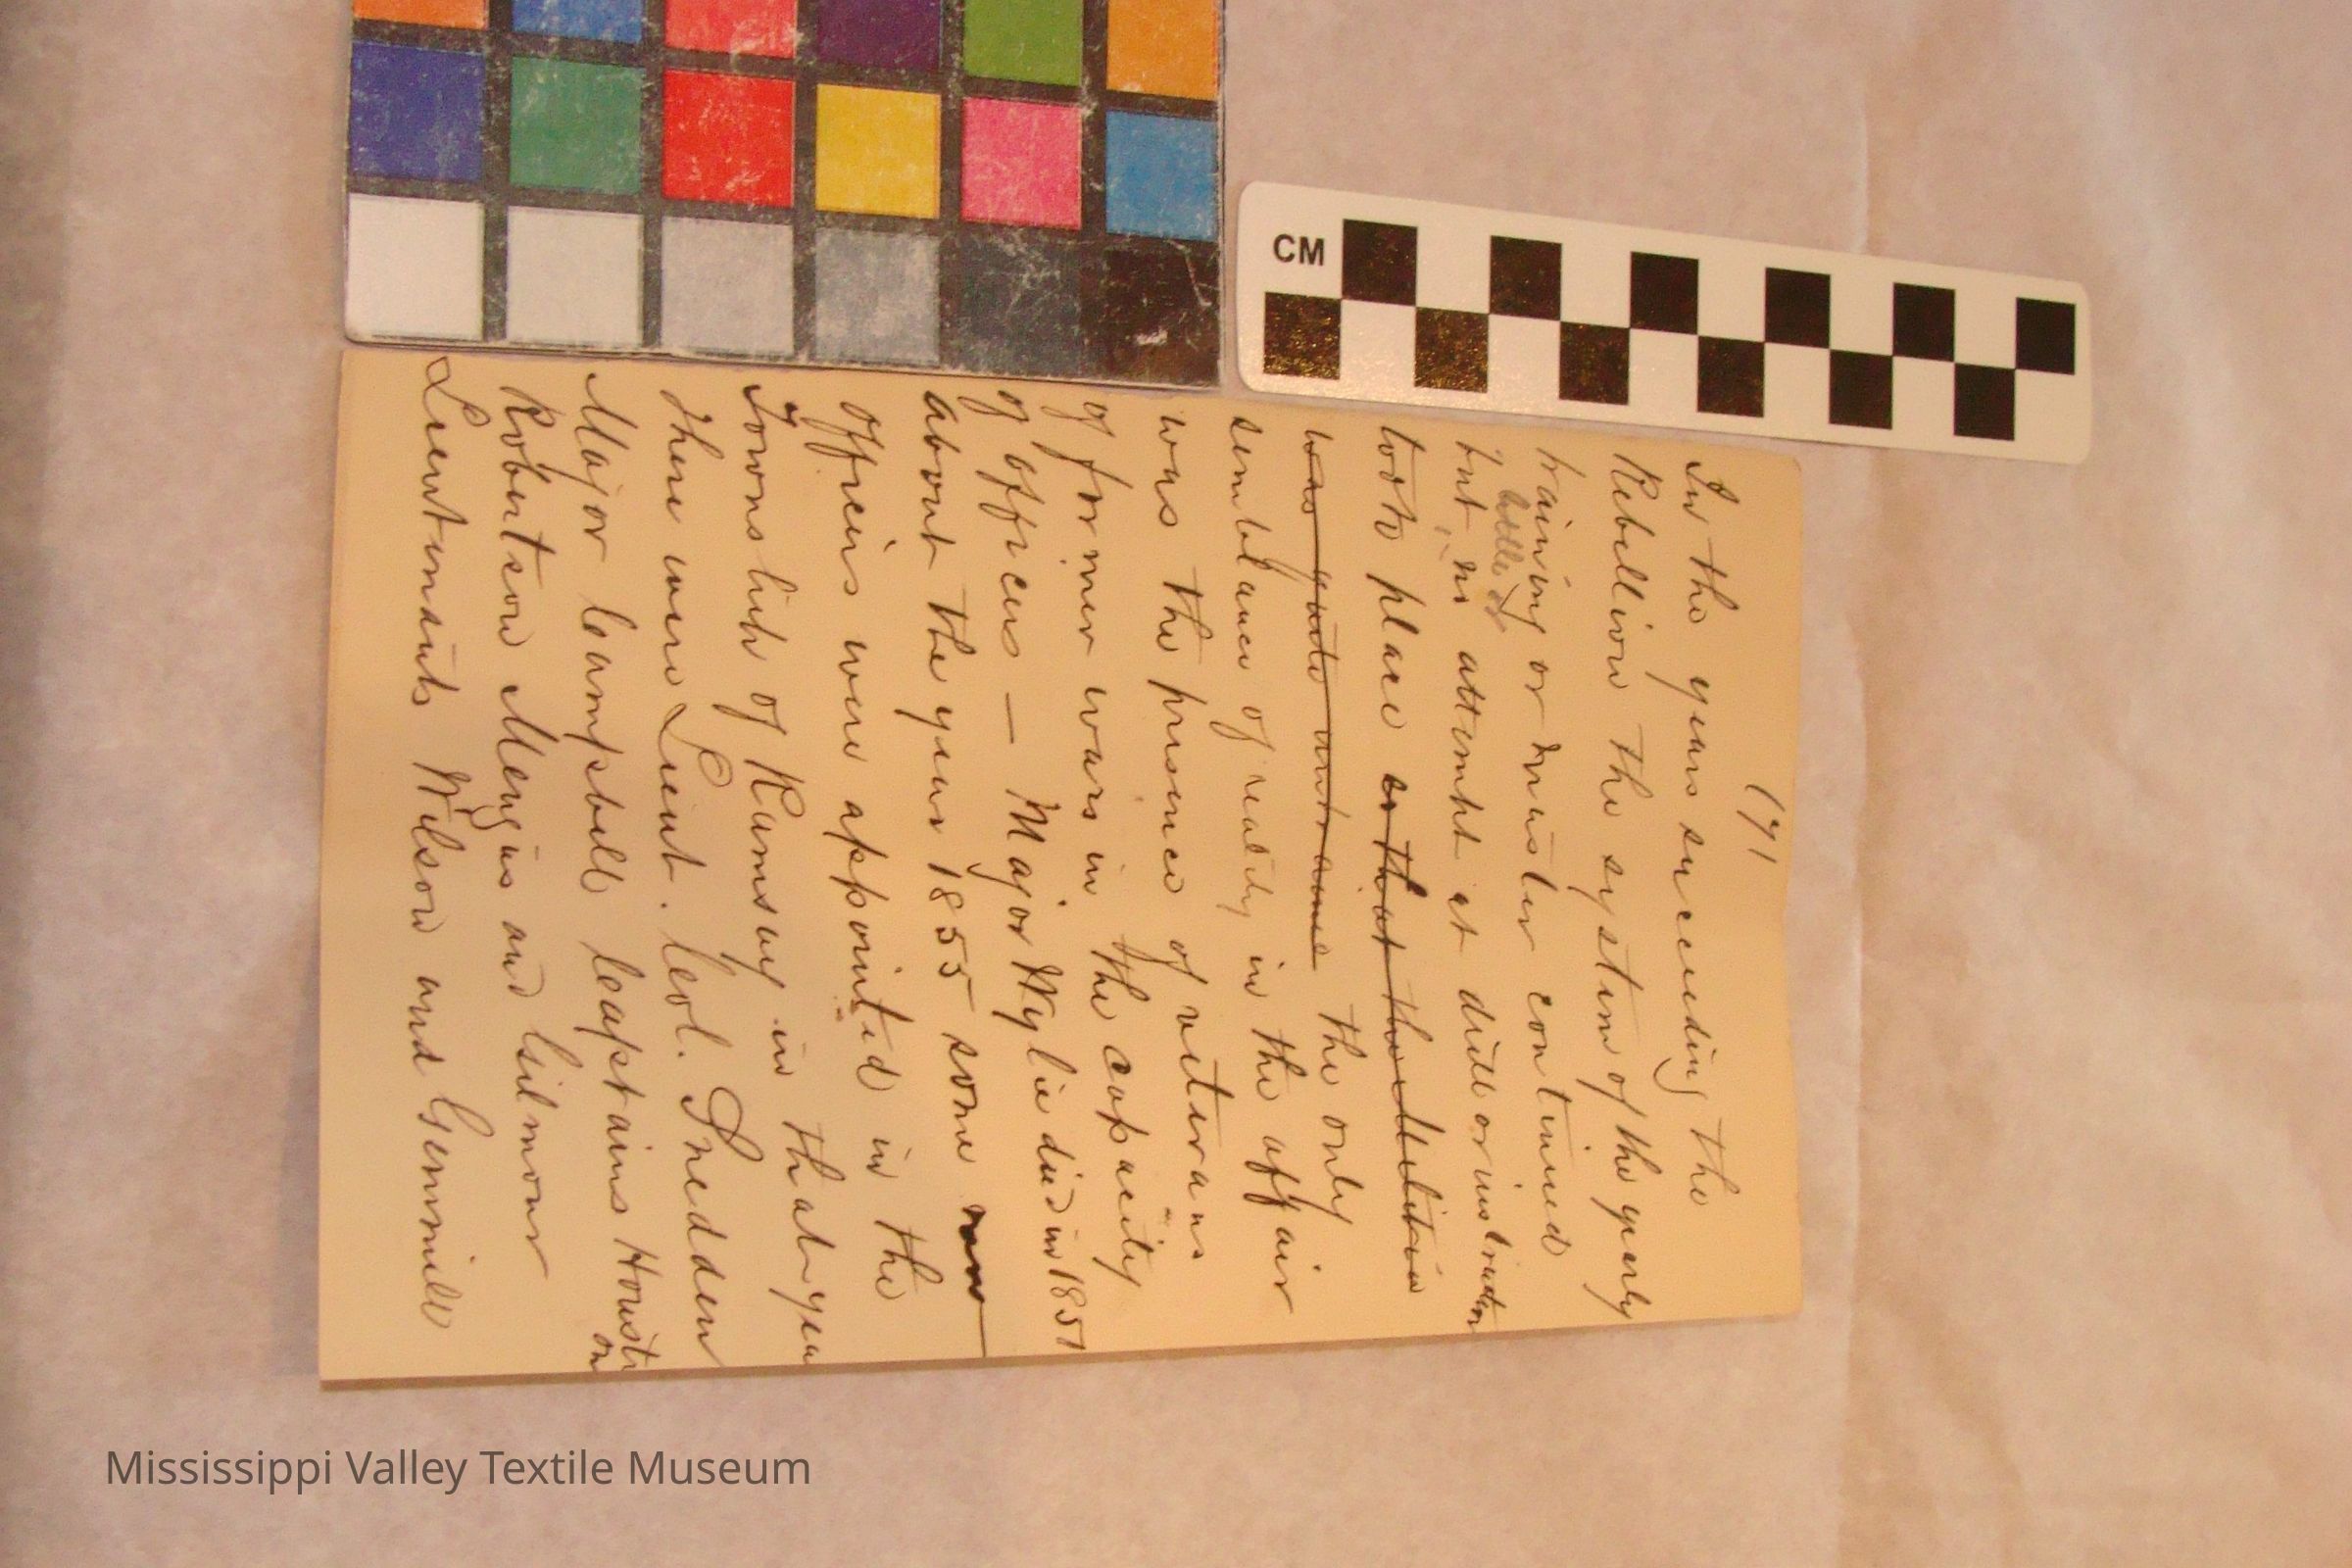 (7)
In the years succeeding the
Rebellion the system of the yearly
training or muster continued
but little or no attempt at drill or instruction
took place so that the Militia
was quite the only
semblance of reality in the affair
was the presence of veterans
of former wars in the capacity
of officers — Major Wylie died in 1851
about the year 1855 some new
officers were appointed in the
Township of Ramsay in that year
there were Lieut. Col. Snedden
Major Campbell Captains Houston
Robertson Menzies and Gilmour
Lieutenants Wilson and Gemmill
CM
Mississippi Valley Textile Museum